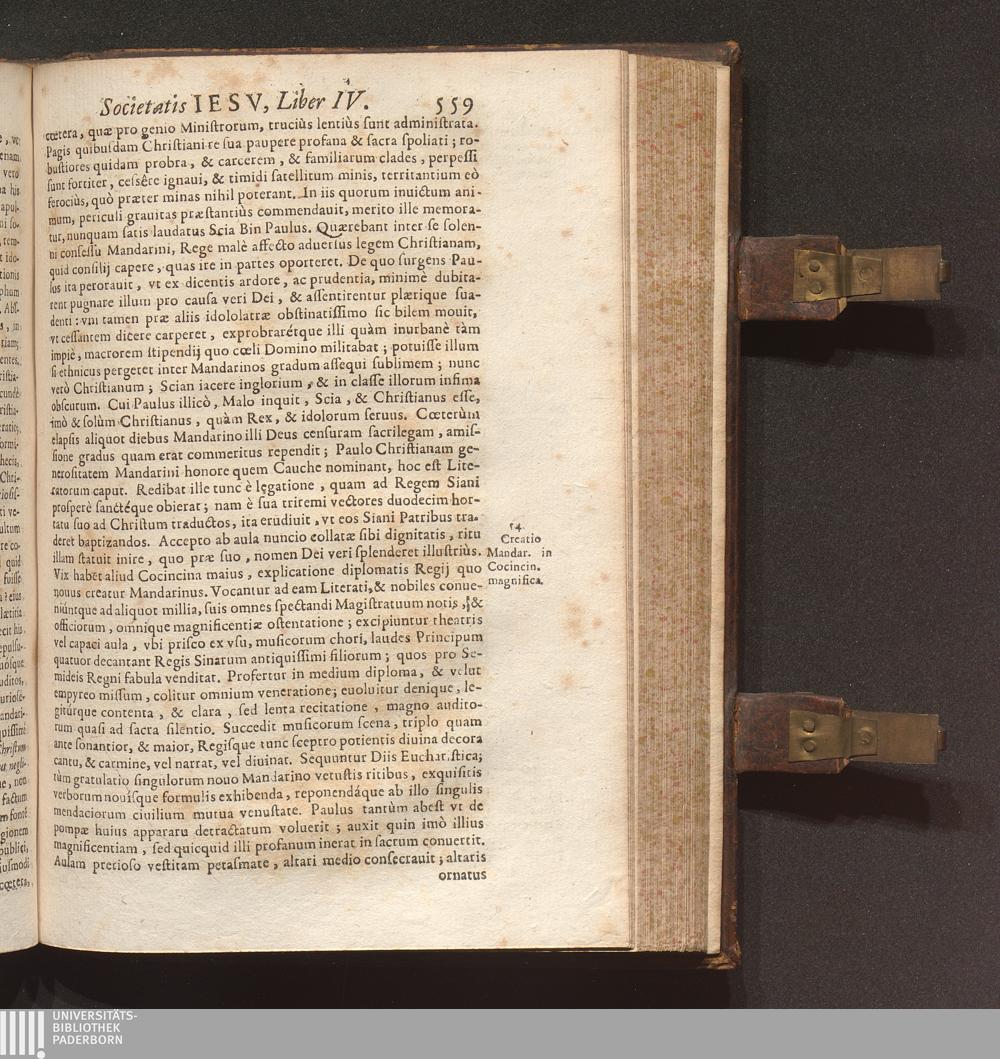 Societatis IESV, Liber IV. 559
cœtera, quæ pro genio Ministrorum, truciùs lentiùs sunt administrata.
Pagis quibusdam Christiani re sua paupere profana & sacra spoliati; ro-
bustiores quidam probra, & carcerem, & familiarum clades, perpessi
sunt fortiter, cessêre ignaui, & timidi satellitum minis, territantium eò
ferociùs, quò præter minas nihil poterant. In iis quorum inuictum ani-
mum, periculi grauitas præstantiùs commendauit, merito ille memora-
tur, nunquam satis laudatus Scia Bin Paulus. Quærebant inter se solen-
ni consessu Mandarini, Rege malè affecto aduersus legem Christianam,
quid consilij capere, quas ire in partes oporteret. De quo surgens Pau-
lus ita perorauit, vt ex dicentis ardore, ac prudentia, minimè dubita-
rent pugnare illum pro causa veri Dei, & assentirentur plærique sua-
denti: vni tamen præ aliis idololatræ obstinatissimo sic bilem mouit,
vt cessantem dicere carperet, exprobrarétque illi quàm inurbanè tàm
impiè, macrorem stipendij quo cœli Domino militabat; potuisse illum
si ethnicus pergeret inter Mandarinos gradum assequi sublimem; nunc
verò Christianum; Scian iacere inglorium, & in classe illorum infima
obscurum. Cui Paulus illicò, Malo inquit, Scia, & Christianus esse,
imò & solùm Christianus, quàm Rex, & idolorum seruus. Cœterùm
elapsis aliquot diebus Mandarino illi Deus censuram sacrilegam, amis-
sione gradus quam erat commeritus rependit; Paulo Christianam ge-
nerositatem Mandarini honore quem Cauche nominant, hoc est Lite-
ratorum caput. Redibat ille tunc è legatione, quam ad Regem Siani
prosperè sanctéque obierat; nam è sua triremi vectores duodecim hor-
tatu suo ad Christum traductos, ita erudiuit, vt eos Siani Patribus tra-
deret baptizandos. Accepto ab aula nuncio collatæ sibi dignitatis, ritu
illam statuit inire, quo præ suo, nomen Dei veri splenderet illustriùs.
Vix habet aliud Cocincina maius, explicatione diplomatis Regij quo
nouus creatur Mandarinus. Vocantur ad eam Literati, & nobiles conue-
niúntque ad aliquot millia, suis omnes spectandi Magistratuum notis, &
officiorum, omnique magnificentiæ ostentatione; excipiuntur theatris
vel capaci aula, vbi prisco ex vsu, musicorum chori, laudes Principum
quatuor decantant Regis Sinarum antiquissimi filiorum; quos pro Se-
mideis Regni fabula venditat. Profertur in medium diploma, & velut
empyreo missum, colitur omnium veneratione; euoluitur denique, le-
gitúrque contenta, & clara, sed lenta recitatione, magno audito-
rum quasi ad sacra silentio. Succedit musicorum scena, triplo quam
ante sonantior, & maior, Regisque tunc sceptro potientis diuina decora
cantu, & carmine, vel narrat, vel diuinat. Sequuntur Diis Eucharistica;
tùm gratulatio singulorum nouo Mandarino vetustis ritibus, exquisitis
verborum nouisque formulis exhibenda, reponendáque ab illo singulis
mendaciorum ciuilium mutua venustate. Paulus tantùm abest vt de
pompæ huius apparatu detractatum voluerit; auxit quin imò illius
magnificentiam, sed quicquid illi profanum inerat in sacrum conuertit.
Aulam pretioso vestitam petasmate, altari medio consecrauit; altaris
ornatus
54.
Creatio
Mandar. in
Cocincin.
magnifica.
UNIVERSITÄTS-
BIBLIOTHEK
PADERBORN